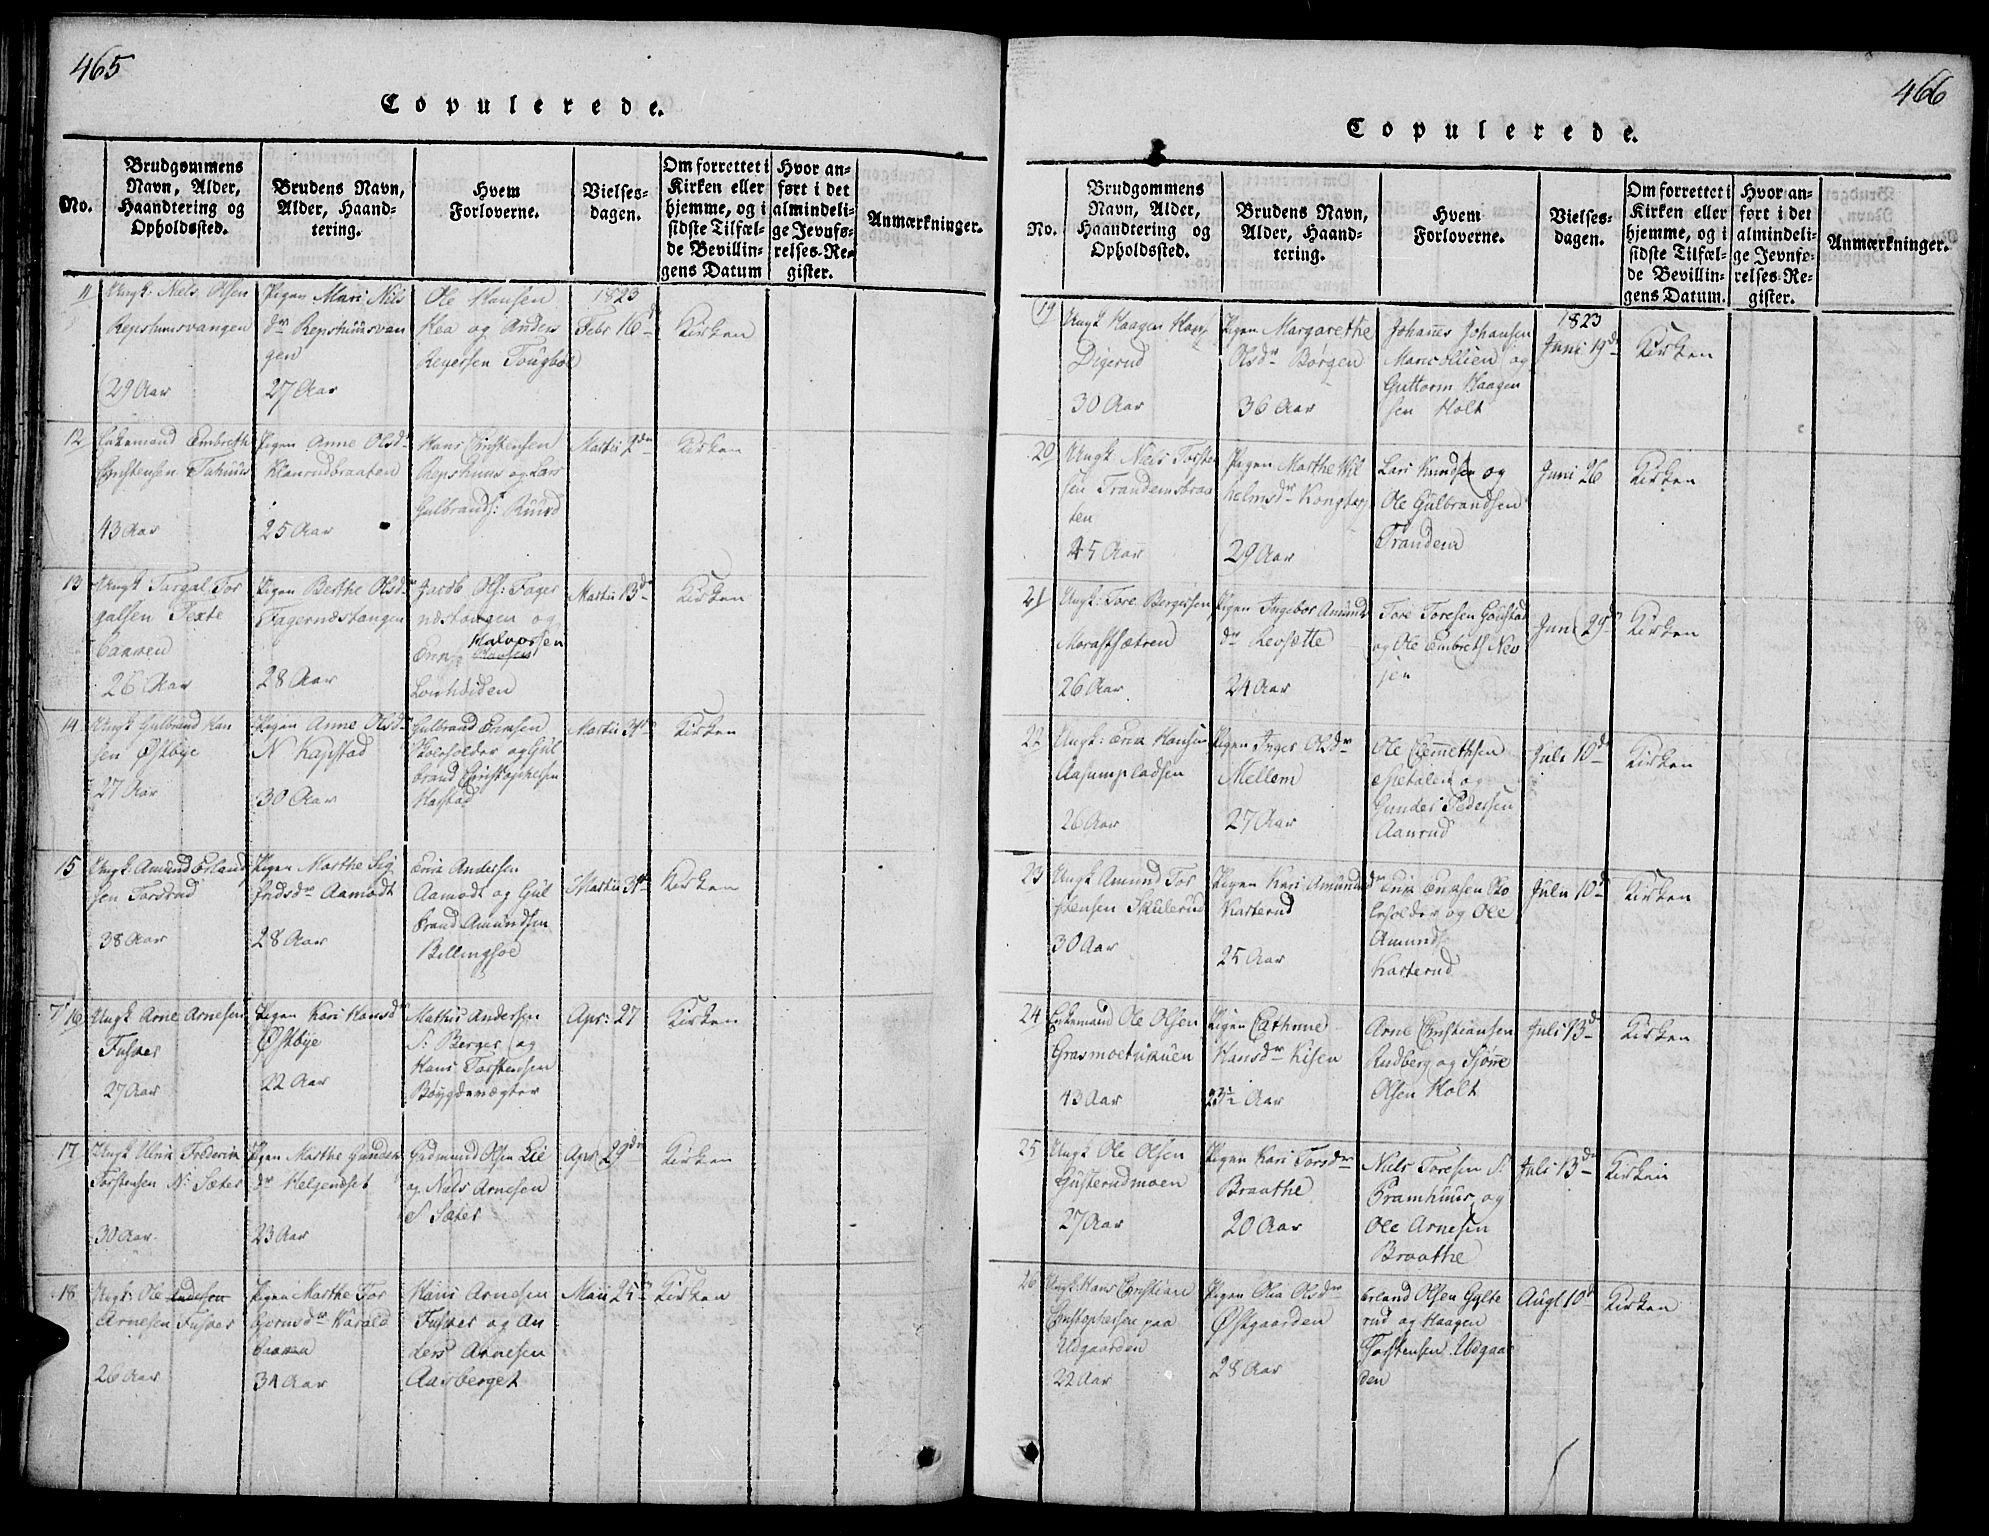 465
Copulerede.
No.
Brudgommens
Navn, Alder,
Haandtering og
Opholdssted.
Brudens Navn,
Alder, Haand-
tering.
Hvem
Forloverne.
Vielses-
dagen.
Om forrettet i
Kirken eller
hjemme, og i
sidste Tilfæl-
de Bevillin-
gens Datum
Hvor an-
ført i det
almindeli-
ge Jevnfø-
relses-Re-
gister.
Anmærkninger.
11
Ungk: Niels Olsen
Repshuusvangen
29 Aar
Pigen Mari Niels
dr Repshuusvan
gen
27 Aar
Ole Hansen
og Anders
Reyersen
1823
Febr 16
Kirken
12
Enkemand Embreth
Christensen
43 Aar
Pigen Anne Olsdr
Klanrudbraaten
25 Aar
Hans Christensen
Repshuus og Lars
Gulbrands: Ruud
Martii 2den
Kirken
13
Ungk Targal Tor
galsen
26 Aar
Pigen Berthe Olsdr
Fagernæstangen
28 Aar
Jacob Ols: Fager
næstangen og
Erik Halvorsen
Martii 13de
Kirken
14
Ungk Gulbrand Han
sen Østbye
27 Aar
Pigen Anne Olsdr
N Kapstad
30 Aar
Gulbrand Ericsen
Skoleholder og Gul
brand Christophersen
Harstad
Martii 31
Kirken
15
Ungk: Amund Erland
sen Torsrud
38 Aar
Pigen Marthe Sig
fridsdr Aamodt
28 Aar
Erik Andersen
Aamodt og Gul
brand Amundsen
Billingsoe
Martii 31
Kirken
16
Ungk Arne Arnesen
Fusker
27 Aar
Pigen Kari Hansd
Østbye
22 Aar
Mathis Andersen
S: Berger og
Hans Torstensen
Bøygdevægter
Apr: 27
Kirken
17
Ungk Ulrik Frederik
Torstensen N: Sæter
30 Aar.
Pigen Marthe Gunder
dr Helgendset
23 Aar
Gudmund Olsen Lie
og Niels Arnesen
S Sæter
Apr 29de
Kirken
18
Ungk: Ole
Arnesen Fusker
26 Aar
Pigen Marthe Tor
biornsdr Harald
34 Aar
Hans Arnesen
Fusker og An
ders Arnesen
Aasberget
Maii 25
Kirken
466
Copulerede.
No.
Brudgommens
Navn, Alder,
Haandtering og
Opholdssted.
Brudens Navn,
Alder, Haand-
tering.
Hvem
Forloverne.
Vielses-
dagen.
Om forrettet i
Kirken eller
hjemme, og i
sidste Tilfæl-
de Bevillin-
gens Datum.
Hvor an-
ført i det
almindeli-
ge Jevnfø-
relses-Re-
gister.
Anmærkninger.
19
Ungk Haagen Hans
Digerud
30 Aar
Pigen Margarethe
Olsdr Børgen
36 Aar
Johannes Johansen
og
Guttorm Haagen
sen Holt
1823
Juni 19de
Kirken
20
Ungk Niels Torste
sen Trandemsbraa
ten
45 Aar
Pigen Marthe Wil
helmsdr Kongberg
29 Aar
Lars Knudsen og
Ole Gulbrandsen
Trandem
Juni 26
Kirken
21
Ungk: Tore Bergersen
26 Aar
Pigen Ingebor Amunds
dr Levsætte
24 Aar
Tore Toresen Goustad
og Ole Embrets
Juni 29
Kirken
22
Ungk: Erik Hansen
Aasumpladsen
26 Aar
Pigen Inger Olsdr
Mellem
27 Aar
Ole Clemethsen
og
Gunder Pedersen
Aanrud
Juli 10de
Kirken
23
Ungk Amund Tor
stensen Skulerud
30 Aar
Pigen Kari Amundsd
Karterud
25 Aar
Erik Ericsen Sko
leholder og Ole
Amunds
Karterud
Juli 10d
Kirken
24
Enkemand Ole Olsen
43 Aar
Pigen Cathrine
Hansdr Kisen
23½ Aar
Arne Christiansen
Rudberg og Sjønne
Olsen Holt
Juli 13de
Kirken
25
Ungk Ole Olsen
Gusterudmoen
27 Aar
Pigen Kari Torsdr
Braathe
20 Aar
Niels Toresen S:
Bramhuus og
Ole Arnesen
Braathe
Juli 13de
Kirken
26
Ungk: Hans Christian
Christophersen paa
Udgaarden
22 Aar
Pigen Olia Olsdr
Østgaarden
28 Aar
Erland Olsen Gylte
rud og Haagen
Torstensen Udgaar
den
Augt 10d
Kirken